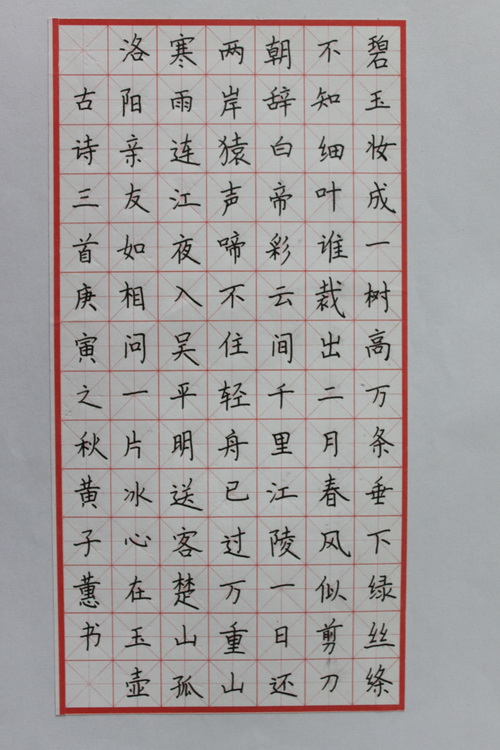 碧玉妆成一树高万条垂下绿丝绦
不知细叶谁裁出二月春风似剪刀
朝辞白帝彩云间千里江陵一日还
两岸猿声啼不住轻舟已过万重山
寒雨连江夜入吴平明送客楚山孤
洛阳亲友如相问一片冰心在玉壶
古诗三首庚寅之秋黄子蕙书